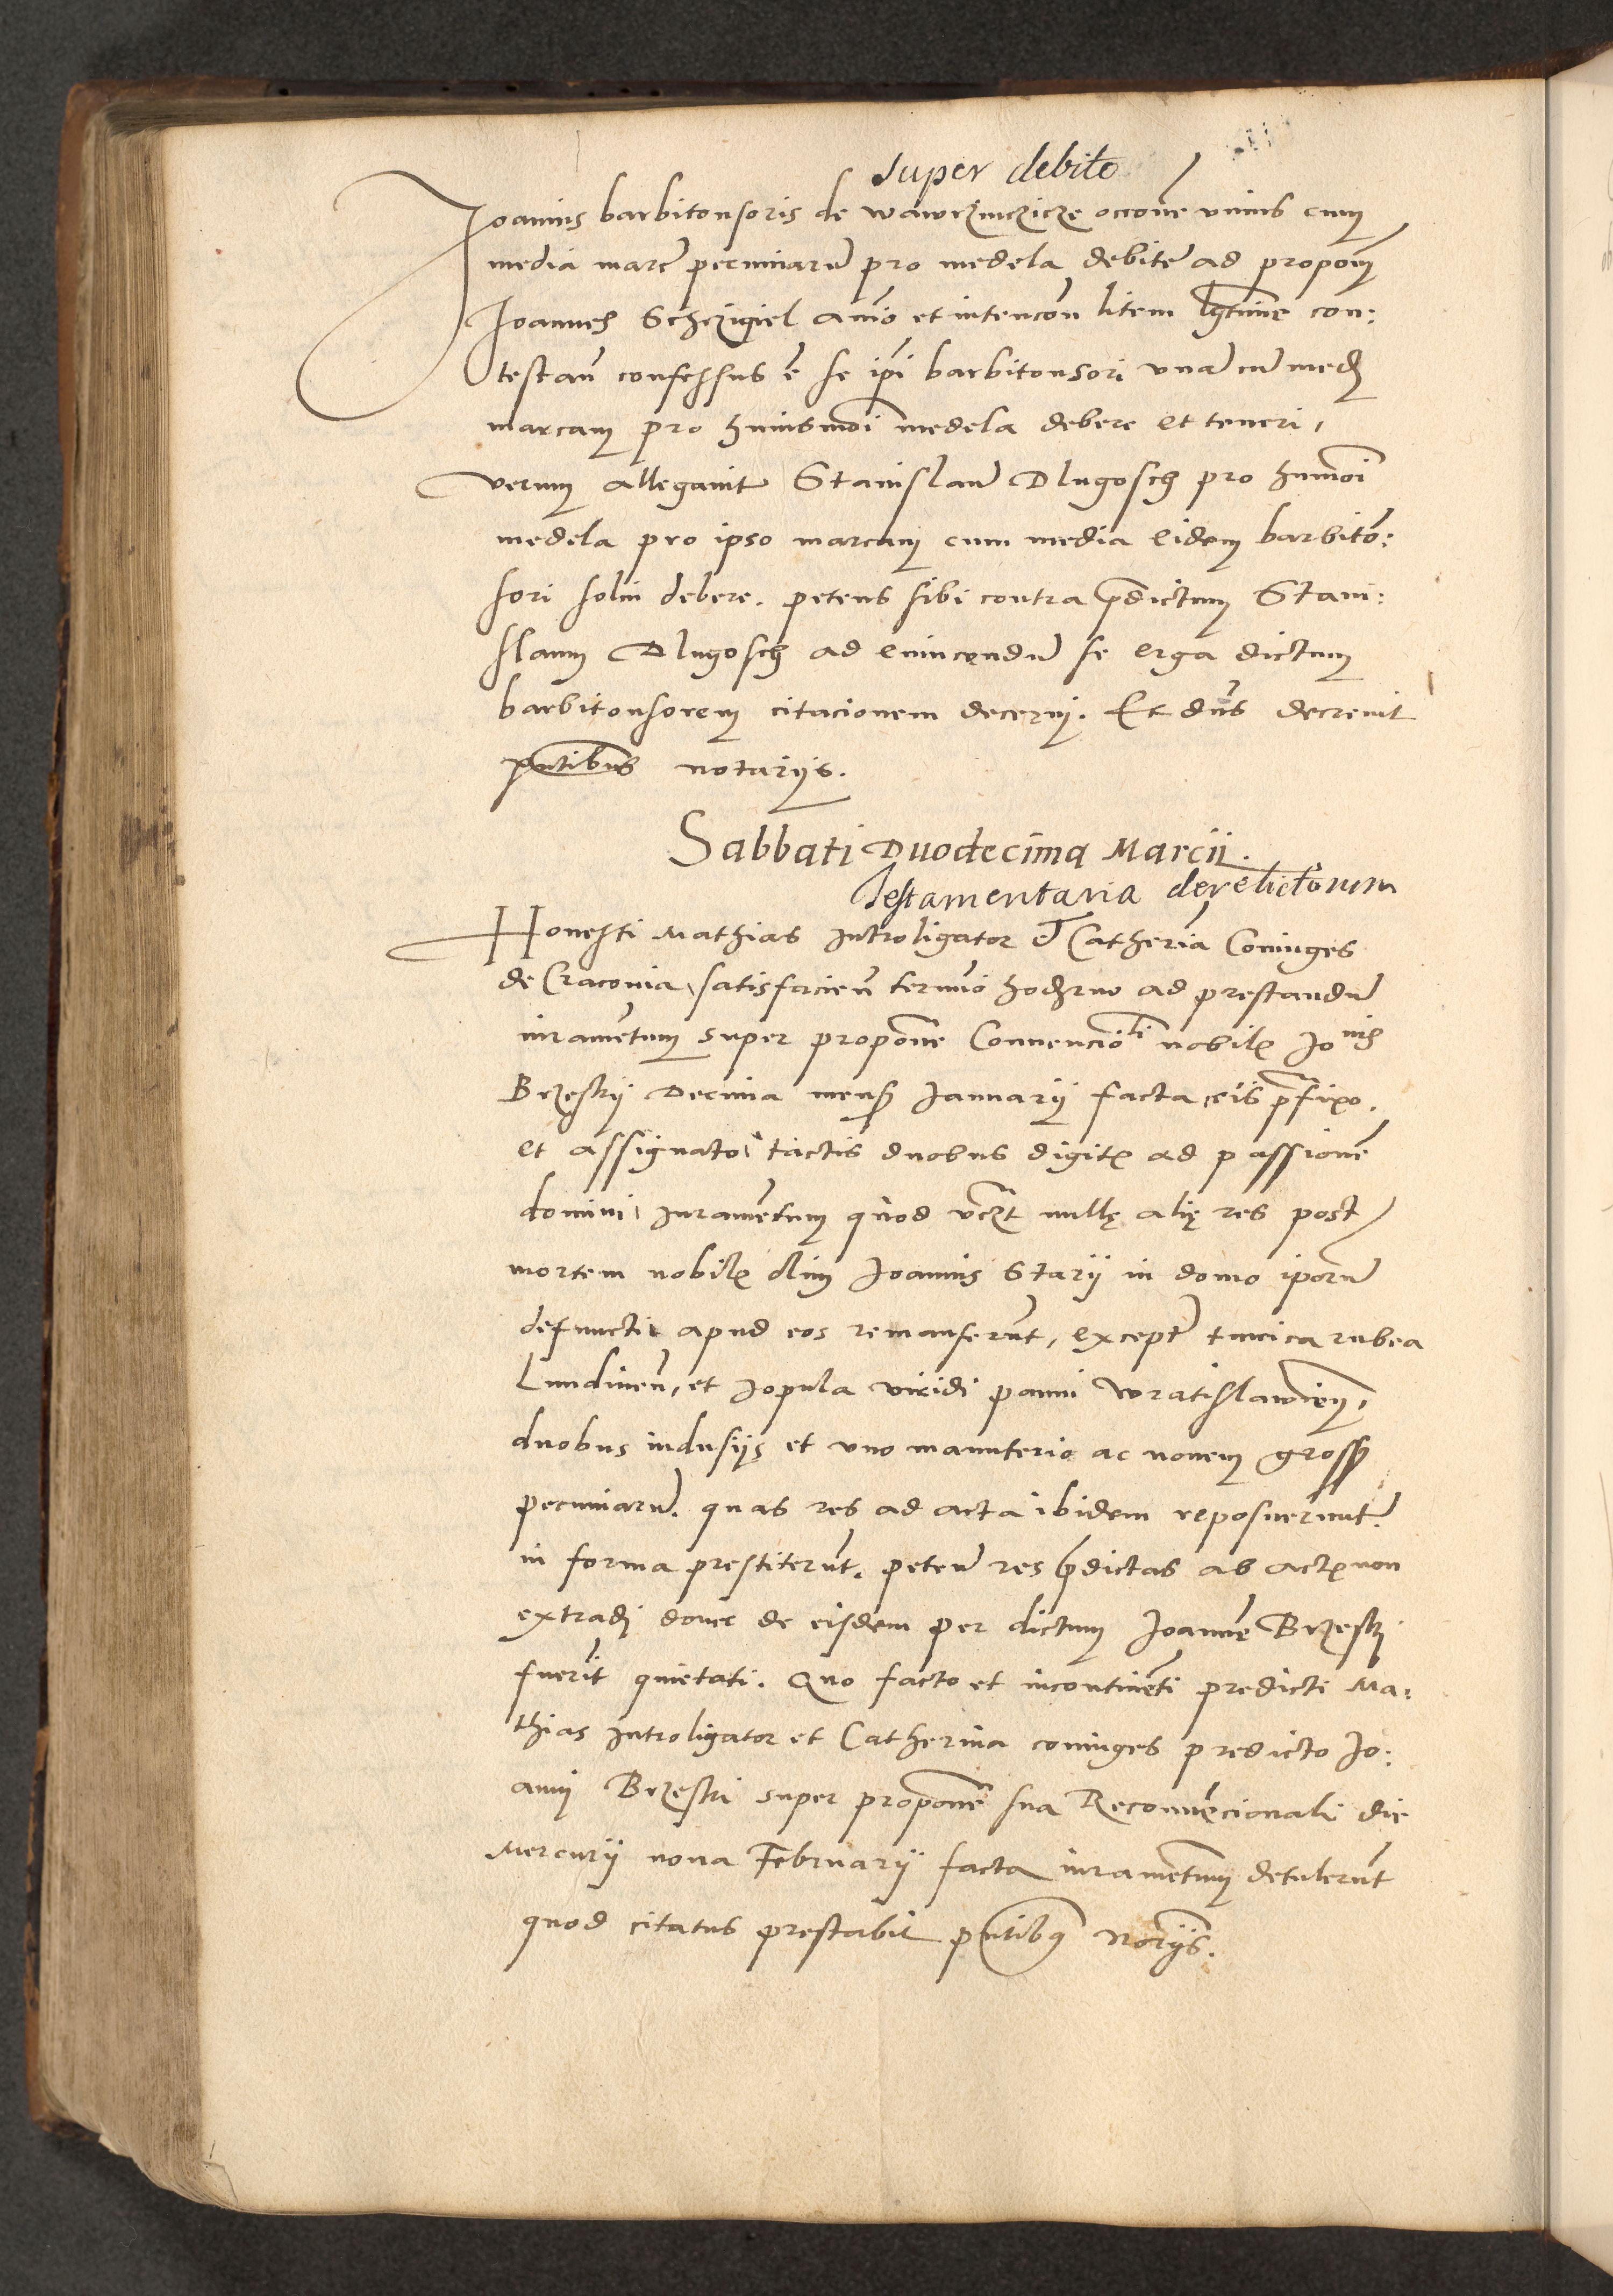 super debito
Joannis barbitonsoris de Wawrzinczicze occone unius cum
media marce pecuniarum pro medela debite ad proponem
Joannes Schczigiel animo et intencon litem lgttime con:
testan confessus e se ipi barbitonsori unam cum media
marcam pro huiusmoi medela debere et teneri,
verum allegavit Stanislaum Dlugosch pro humoi
medela pro ipso marcam cum media eidem barbiton:
sori solvi debere. petens sibi contra pdictum Stani:
slaum Dlugosch ad evincendum se erga dictum
barbitonsorem citacionem decerni. Et dns decrevit
pntibus notariis.
Sabbati Duodecima Marcii.
Testamentaria derelictorum
Honesti Mathias Introligator et Catherina Coniuges
de Cracovia, satisfacien termino hodierno ad prestandum
iuramentum super propone Convencioli nobilis Jonis
Brzeski Decima mensis Januarii facta, eis prefixo,
et assignato, tactis duobus digitis ad passionem
domini, iuramentum quod vczt nullę alię res post
mortem nobilis olim Joannis Starii in domo iporum
defuncti apud eos remanserunt, except tunica rubea
Lundinen, et Jopula viridi panni Wratislawien,
duobus indusiis et uno manuterio ac novem grossis
pecuniarum. quas res ad acta ibidem reposuerunt
in forma prestiterunt. peten res pdictas ab actis non
extradi donec de eisdem per dictum Joannem Brzeski
fuerint quietati. Quo facto et incontinenti predicti Ma:
thias Introligator et Catherina coniuges predicto Jo:
anni Brzeski super propone sua Reconvencionali die
Mercurii nona Februarii facta iuramentum detulerunt
quod citatus prestabit pntibus Noriis.